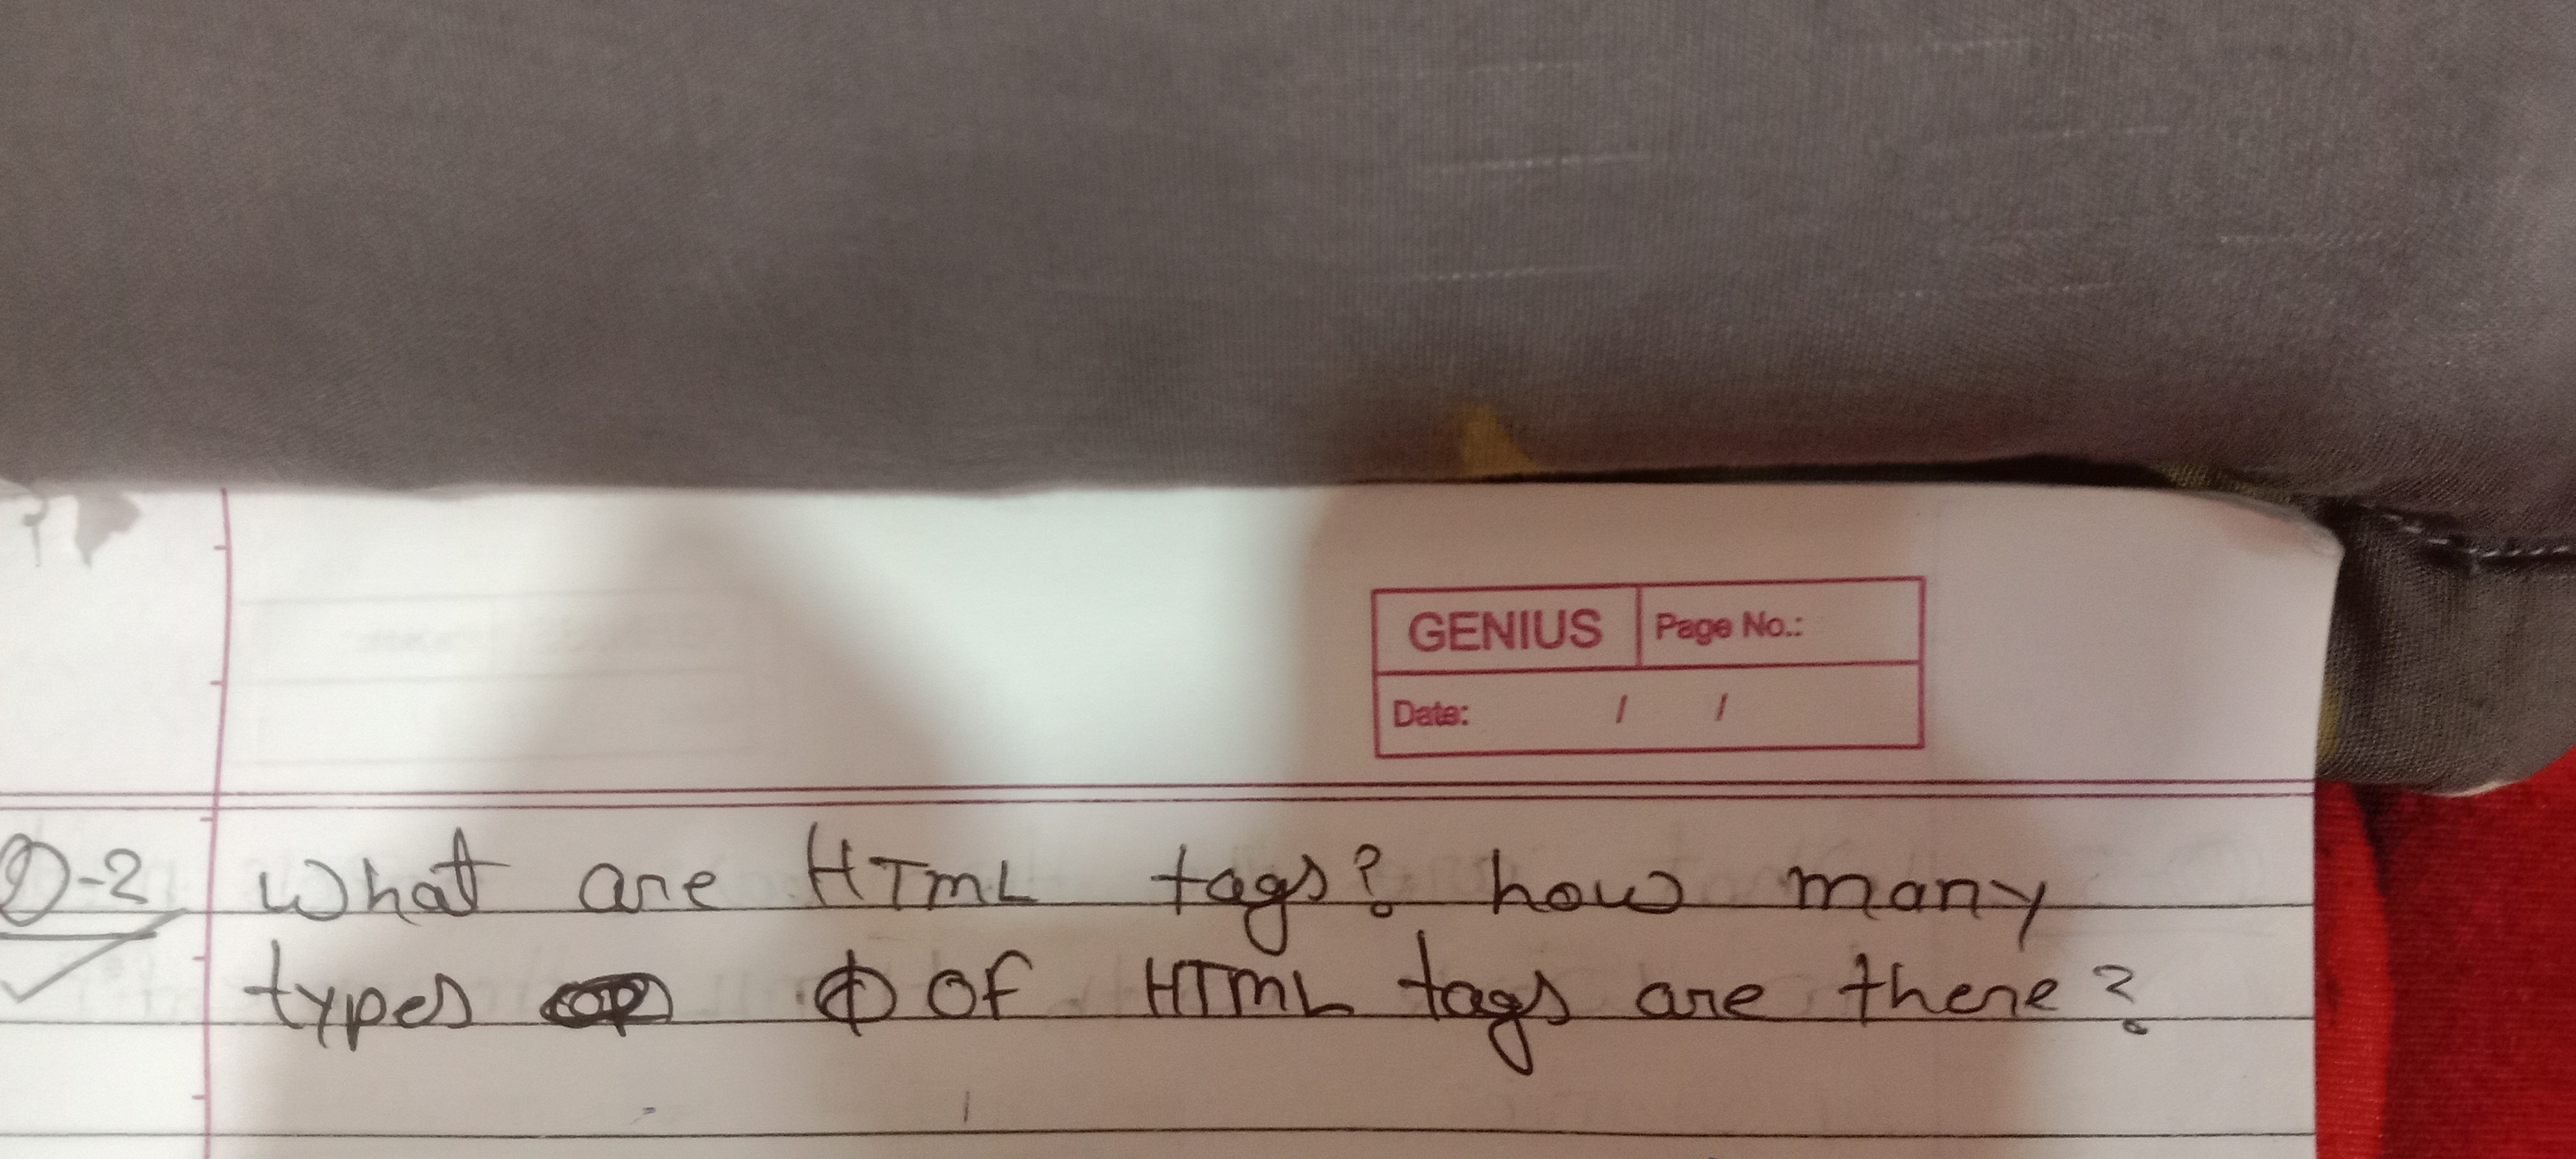 GENIUS Page No.:
Date: / /
Q-2 What are HTML tags? how many
types of HTML tags are there?